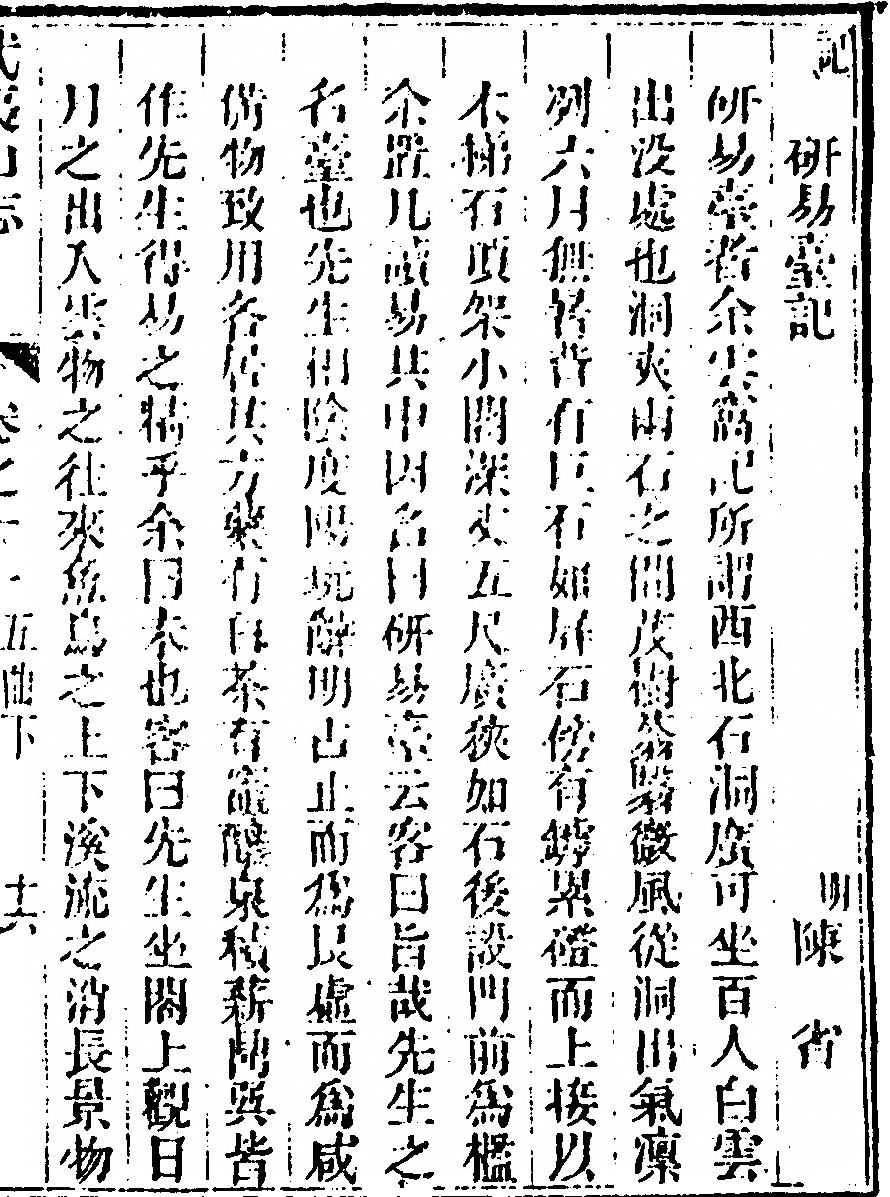 記
研易臺記 明 陳省
研易臺者余雲窩記所謂西北石洞廣可坐百人白雲
出没處也洞夾兩石之間茂樹蓊翳微風從洞出氣凜
冽六月無暑背有巨石如屏石傍有罅累磴而上接以
木梯石頂架小閣深丈五尺廣狹如石後設門前為檻
余置几讀易其中因名曰研易臺云客曰旨哉先生之
名臺也先生相陰度陽玩辭明占止而為艮虛而為咸
備物致用各居其方藥有臼茶有竈釀泉積薪鼎巽皆
作先生得易之精乎余曰未也客曰先生坐閣上觀日
月之出入雲物之往來魚鳥之上下溪流之消長景物
武夷山志 卷之十 五曲下 十六